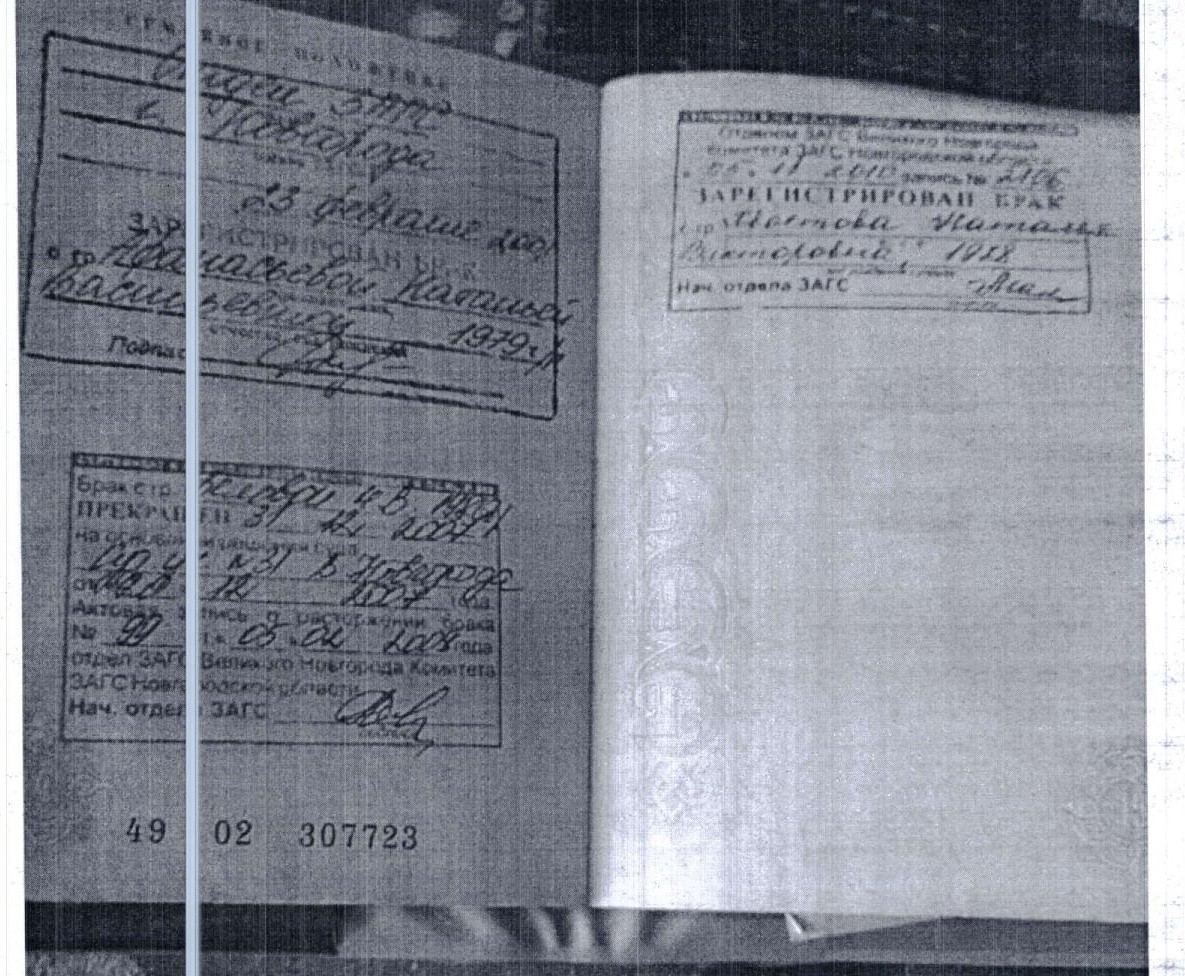 СЕМЕЙНОЕ ПОЛОЖЕНИЕ
Отдел ЗАГС
г. Новгорода
23 февраля 2001
ЗАРЕГИСТРИРОВАН БРАК
с гр. Афанасьевой Натальей
Васильевной 1979 г/р
Подпись
Брак с гр.
ПРЕКРАЩЕН 31 12 2007
на основании решения суда
№31 В Новгорода
20 12 2007 года
Актовая запись о расторжении брака
№ 99 от 05 02 2008 года
отдел ЗАГС Великого Новгорода Комитета
ЗАГС Новгородской области
Нач. отдела ЗАГС
49 02 307723
Отделом ЗАГС Великого Новгорода
комитета ЗАГС Новгородской области
05. 11 2010 запись № 2106
ЗАРЕГИСТРИРОВАН БРАК
с гр. Наталья
Викторовна 1988
Нач. отдела ЗАГС